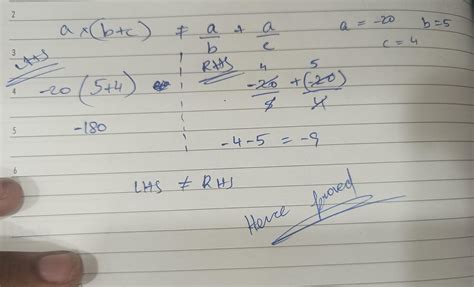 2
a × (b+c) ≠ a/b + a/c   a = -20   b = 5
c = 4
3
LHS   RHS   4   5
4
-20 (5+4)   -20/5 + (-20)/4
5
-180   -4-5 = -9
6
LHS ≠ RHS
Hence proved